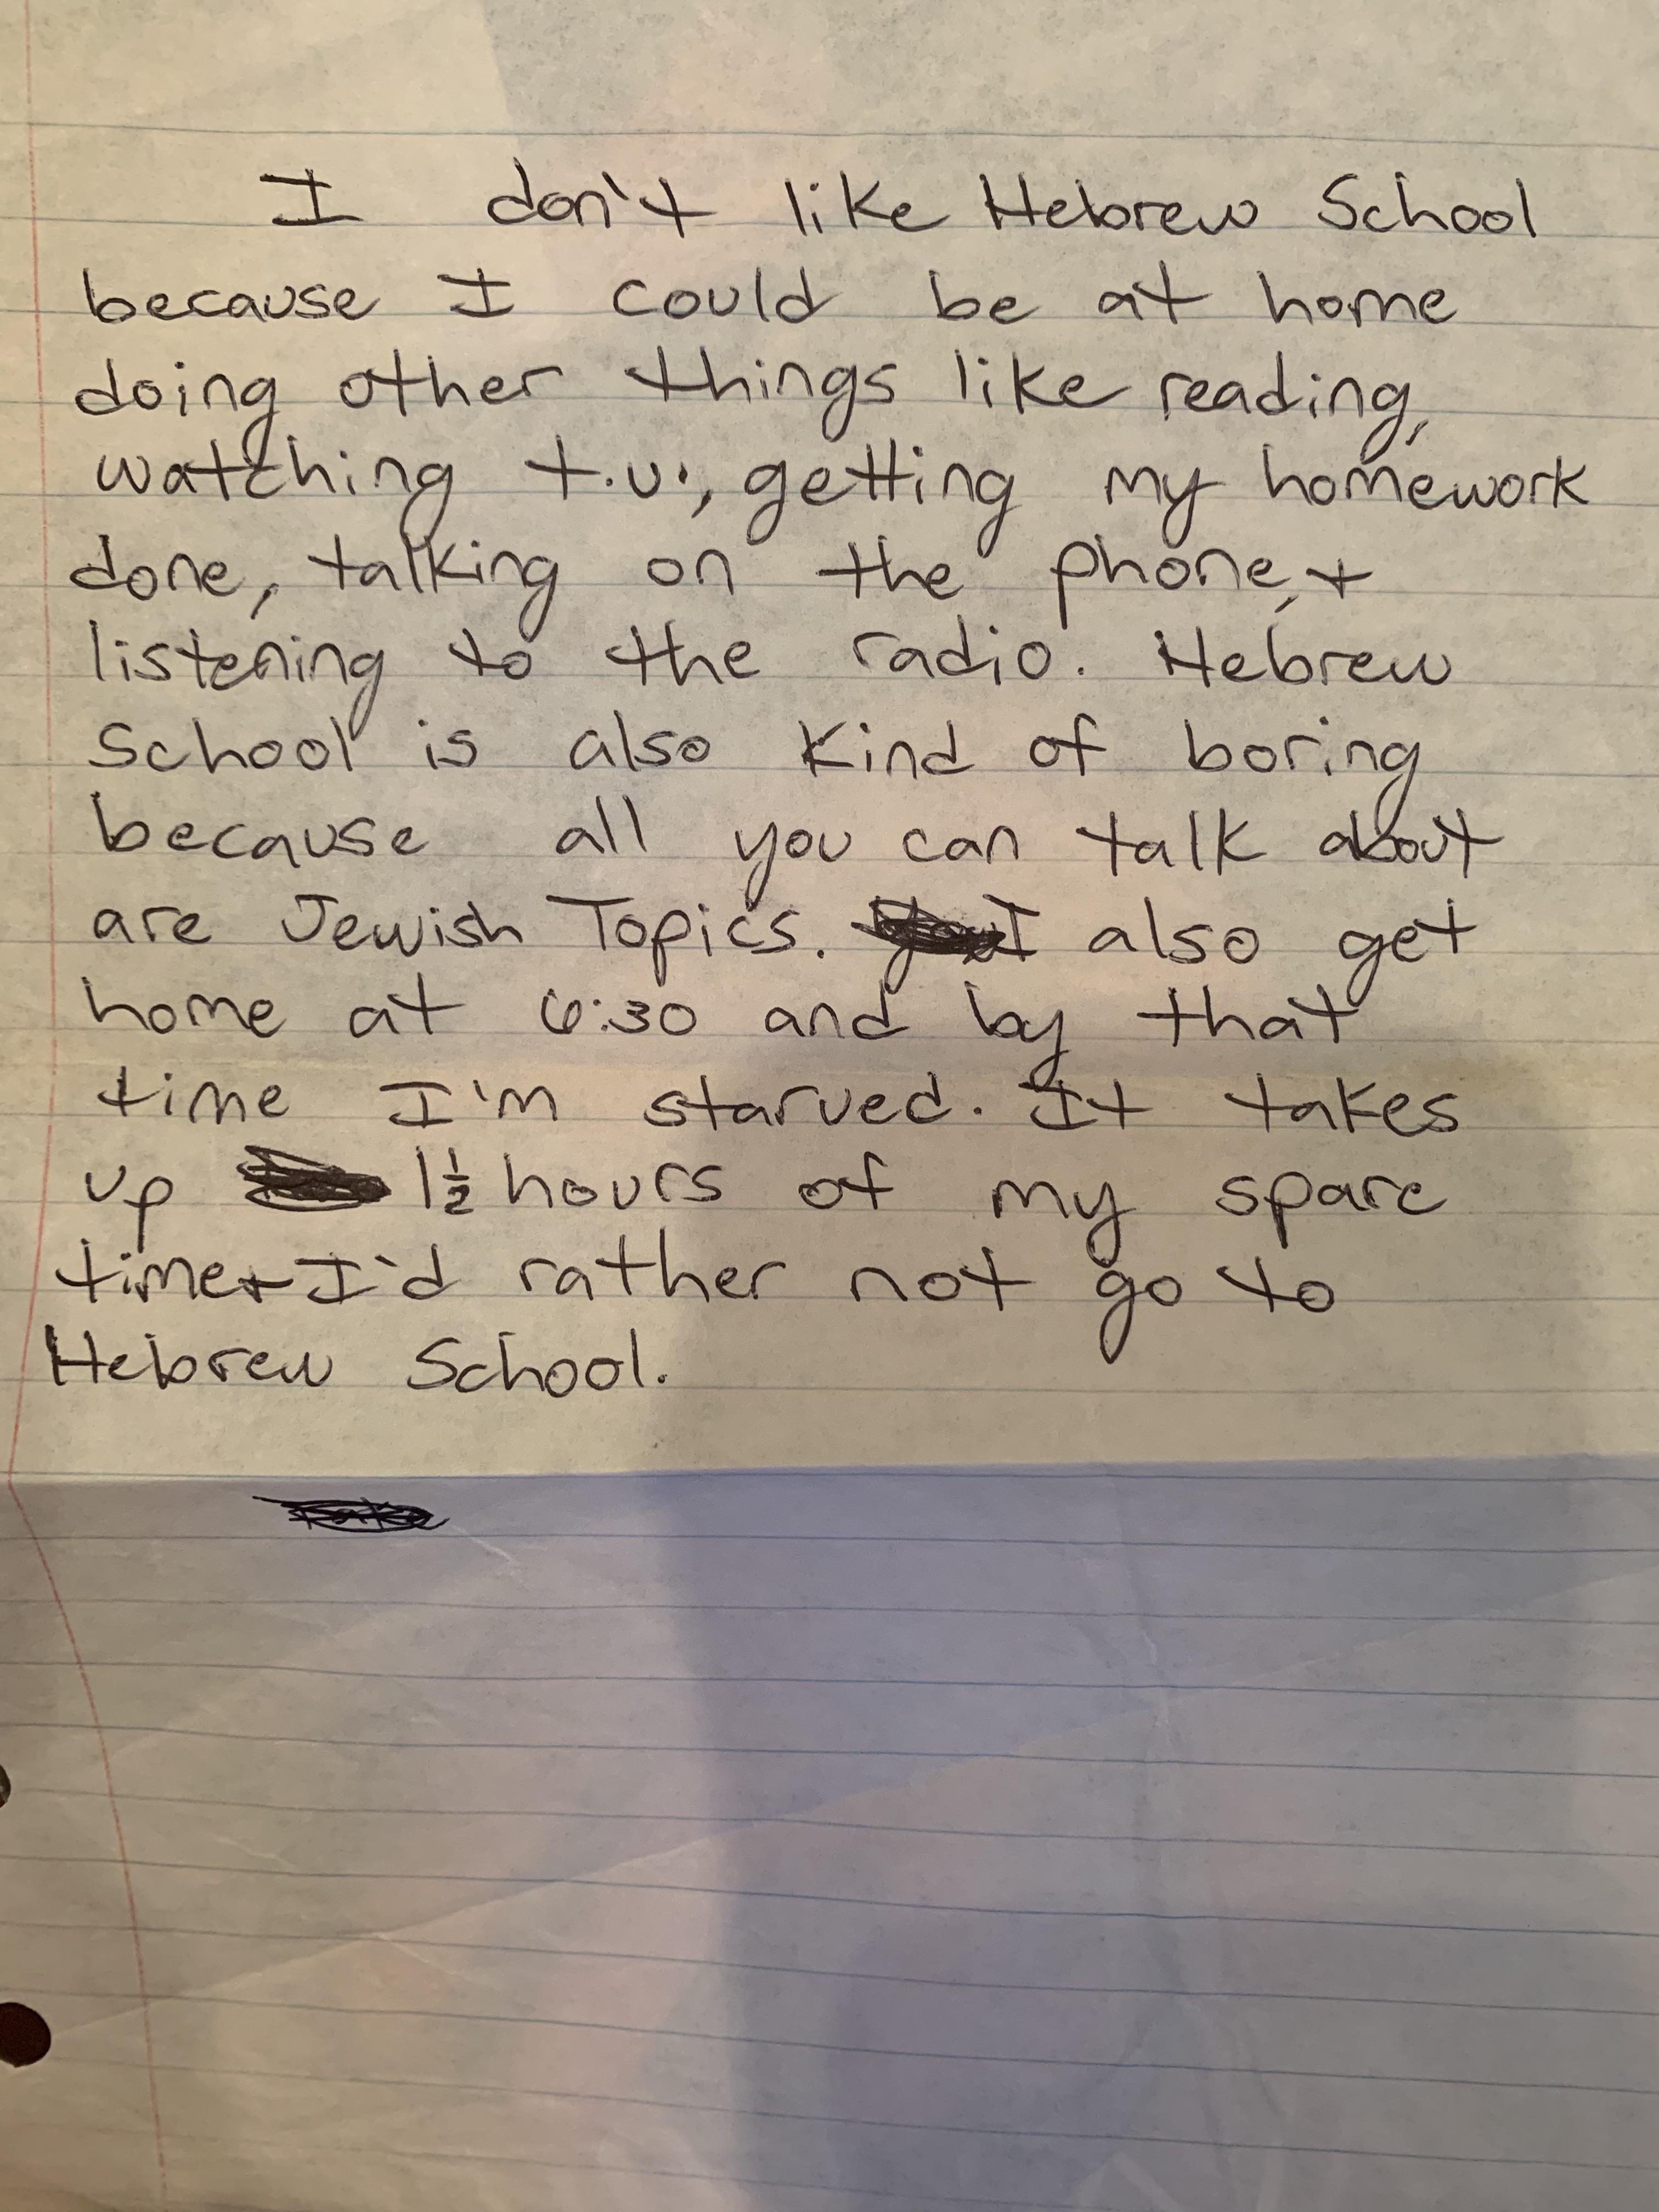 I don't like Hebrew School
because I could be at home
doing other things like reading,
watching t.v., getting my homework
done, talking on the phone, +
listening to the radio. Hebrew
School is also kind of boring
because all you can talk about
are Jewish Topics. I also get
home at 6:30 and by that
time I'm starved. It takes
up 1½ hours of my spare
time + I'd rather not go to
Hebrew School.